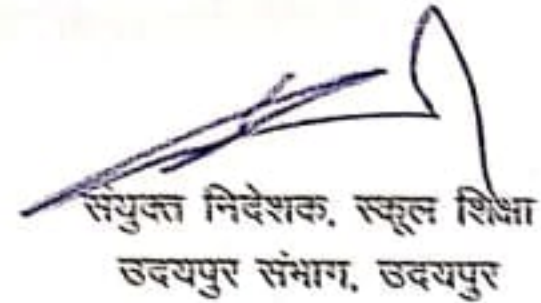 संयुक्त निदेशक, स्कूल शिक्षा
उदयपुर संभाग, उदयपुर